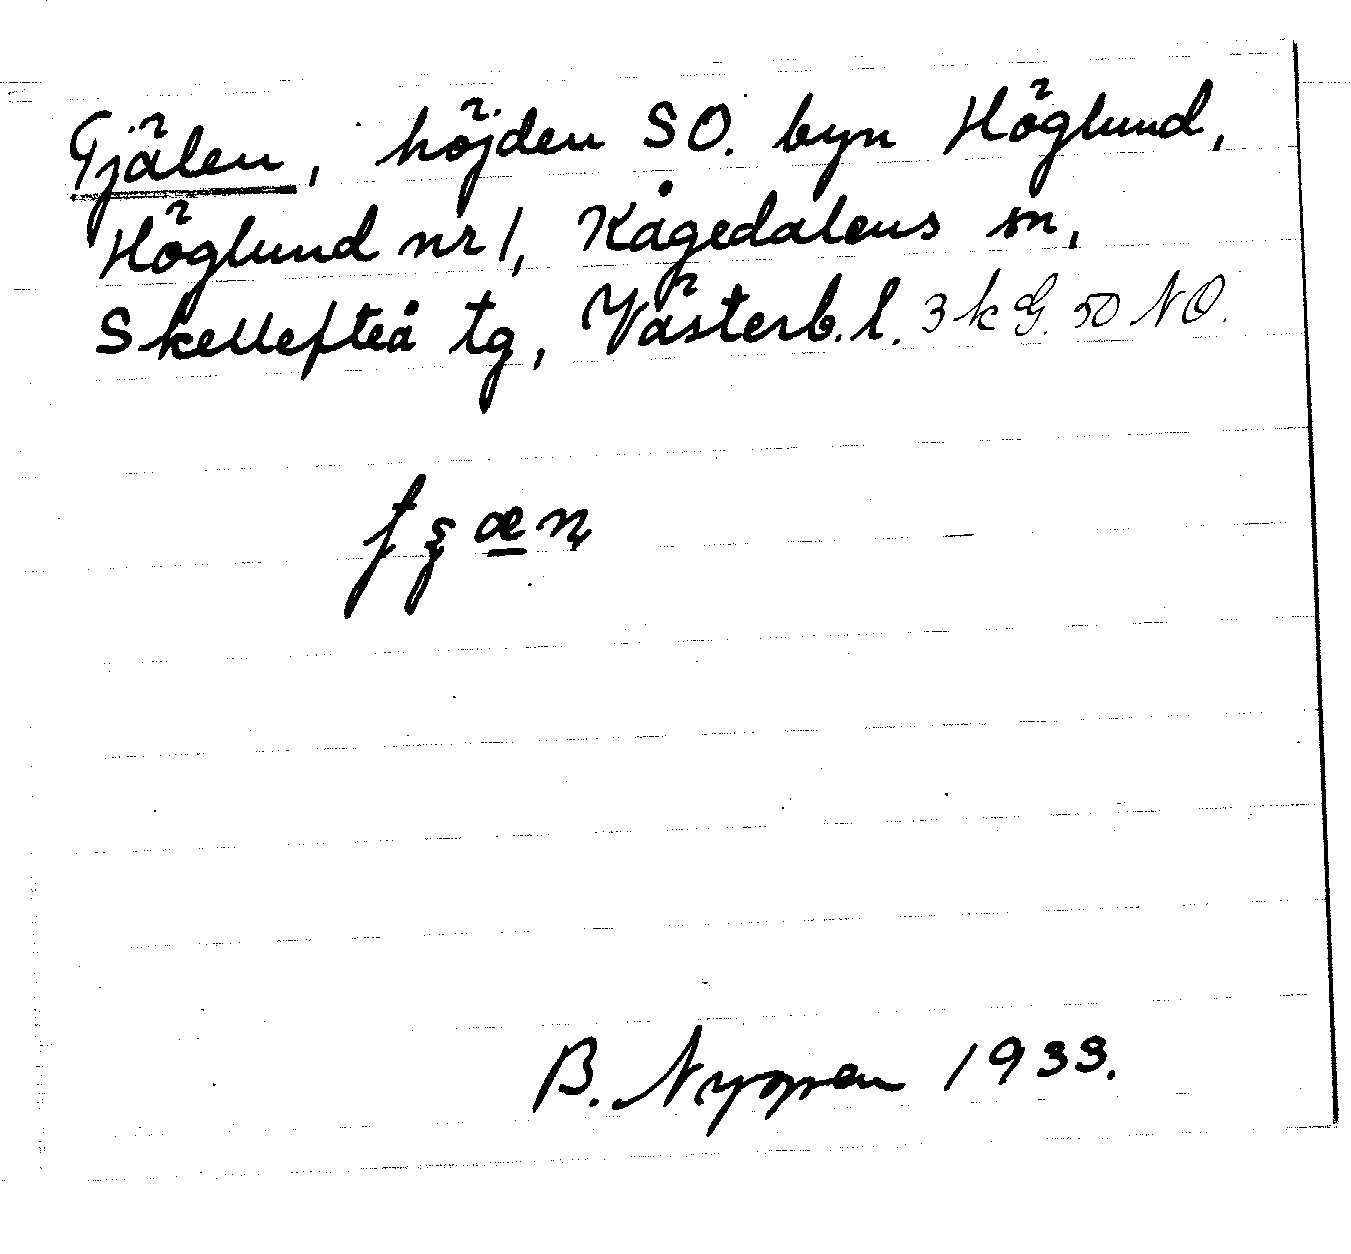 Tjälen, höjden SO. byn Höglund,
Höglund nr 1, Kågedalens sn,
Skellefteå tg, Västerb. l. 3 k G. 50 NO.
B. 1933.